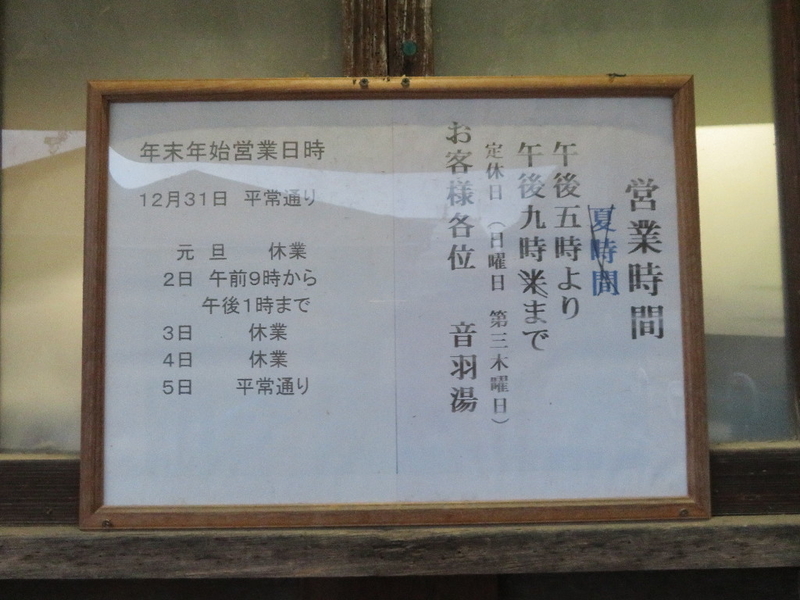 営業時間
夏時間
午後五時より
午後九時半まで
定休日 （日曜日 第三木曜日）
お客様各位 音羽湯
年末年始営業日時
12月31日 平常通り
元 旦 休業
2日 午前9時から
午後1時まで
3日 休業
4日 休業
5日 平常通り